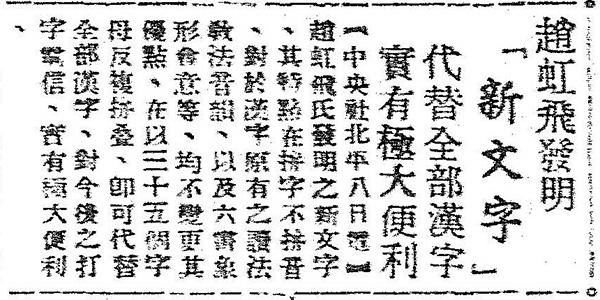 趙虹飛發明
「新文字」
代替全部漢字
實有極大便利
【中央社北平八日電】
趙虹飛氏發明之新文字
、其特點在拼字不拼音
、對於漢字原有之讀法
敎法音韻、以及六書象
形會意等、均不變更其
優點、在以三十五個字
母反複拼叠、卽可代替
全部漢字、對今後之打
字電信、實有極大便利
、